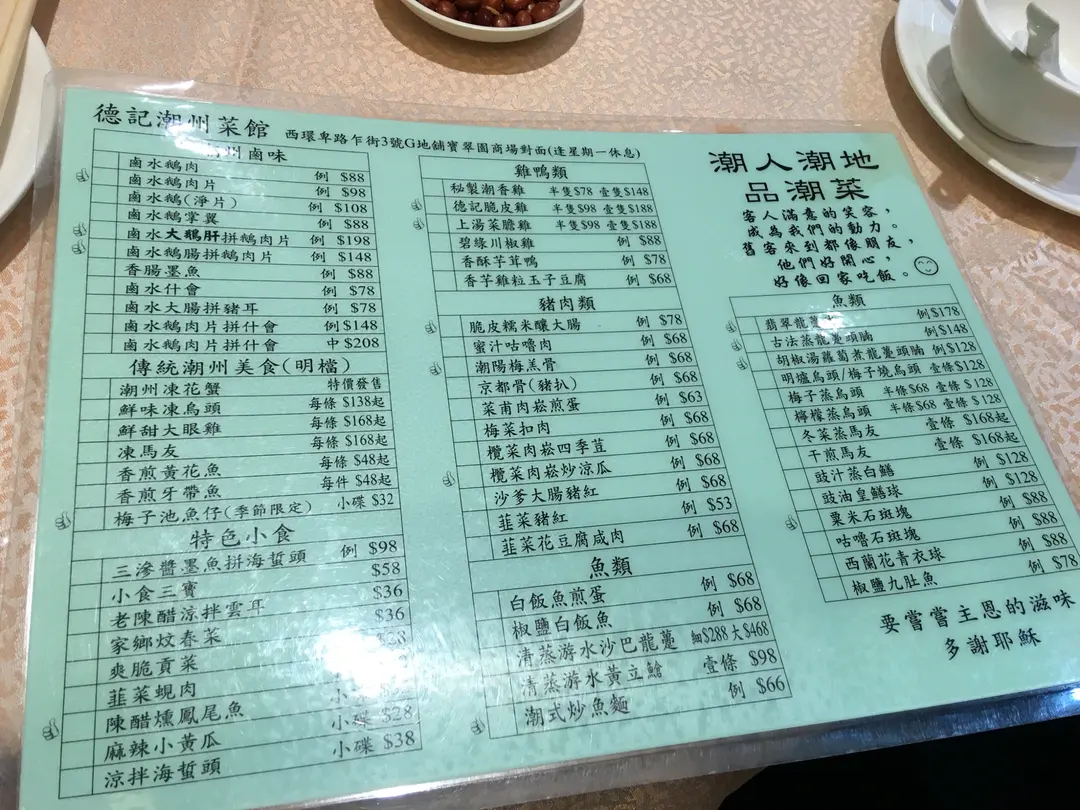 德記潮州菜館 西環卑路乍街3號G地舖寶翠園商場對面(逢星期一休息)
州鹵味
鹵水鵝肉 例 $88
鹵水鵝肉片 例 $98
鹵水鵝(淨片) 例 $108
鹵水鵝掌翼 例 $88
鹵水大鵝肝拼鵝肉片 例 $198
鹵水鵝腸拼鵝肉片 例 $148
香腸墨魚 例 $88
鹵水什會 例 $78
鹵水大腸拼豬耳 例 $78
鹵水鵝肉片拼什會 例 $148
鹵水鵝肉片拼什會 中 $208
傳統潮州美食(明檔)
潮州凍花蟹 特價發售
鮮味凍烏頭 每條 $138起
鮮甜大眼雞 每條 $168起
凍馬友 每條 $168起
香煎黃花魚 每條 $48起
香煎牙帶魚 每件 $48起
梅子池魚仔(季節限定) 小碟 $32
特色小食
三滲醬墨魚拼海蜇頭 例 $98
小食三寶 $58
老陳醋涼拌雲耳 $36
家鄉炆春菜 $36
爽脆貢菜 $28
韮菜蜆肉
陳醋燻鳳尾魚 小
麻辣小黃瓜 小碟 $28
涼拌海蜇頭 小碟 $38
雞鴨類
秘製潮香雞 半隻$78 壹隻$148
德記脆皮雞 半隻$98 壹隻$188
上湯菜膽雞 半隻$98 壹隻$188
碧綠川椒雞 例 $88
香酥芋茸鴨 例 $78
香芋雞粒玉子豆腐 例 $68
豬肉類
脆皮糯米釀大腸 例 $78
蜜汁咕嚕肉 例 $68
潮陽梅羔骨 例 $68
京都骨(豬扒) 例 $68
菜甫肉崧煎蛋 例 $63
梅菜扣肉 例 $68
欖菜肉崧四季荳 例 $68
欖菜肉崧炒涼瓜 例 $68
沙爹大腸豬紅 例 $68
韮菜豬紅 例 $53
韮菜花豆腐咸肉 例 $68
魚類
白飯魚煎蛋 例 $68
椒鹽白飯魚 例 $68
清蒸游水沙巴龍躉 細$288 大$468
清蒸游水黃立鱠 壹條 $98
潮式炒魚麵 例 $66
潮人潮地
品潮菜
客人滿意的笑容，
成為我們的動力。
舊客來到都像朋友，
他們好開心，
好像回家吃飯。
魚類
翡翠龍躉 例$178
古法蒸龍躉頭腩 例$148
胡椒湯蘿蔔煮龍躉頭腩 例$128
明爐烏頭/梅子燒烏頭 壹條$128
梅子蒸烏頭 半條$68 壹條$128
檸檬蒸烏頭 半條$68 壹條$128
冬菜蒸馬友 壹條 $168起
干煎馬友 壹條 $168起
豉汁蒸白鱔 例 $128
豉油皇鱔球 例 $128
粟米石斑塊 例 $88
咕嚕石斑塊 例 $88
西蘭花青衣球 例 $88
椒鹽九肚魚 例 $78
要嘗嘗主恩的滋味
多謝耶穌